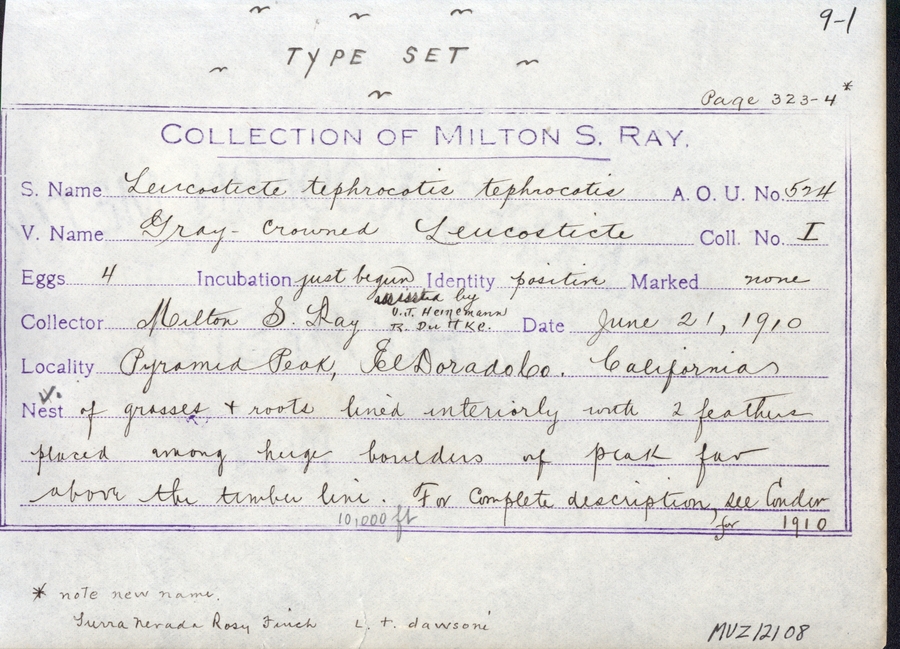 9-1
TYPE SET
Page 323-4*
COLLECTION OF MILTON S. RAY.
S. Name Leucosticte tephrocotis tephrocotis A. O. U. No. 524
V. Name Gray-crowned Leucosticte Coll. No. I
Eggs 4 Incubation just begun Identity positive Marked none
assisted by
Collector Milton S. Ray O.J. Heinemann Date June 21, 1910
R. Du
Locality Pyramid Peak, El Dorado Co. California
Nest of grasses + roots lined interiorly with 2 feathers
placed among huge boulders of peak far
above the timber line. For complete description, see Condor
10,000 ft for 1910
* note new name.
Sierra Nevada Rosy Finch L. t. dawsoni
MVZ 12108